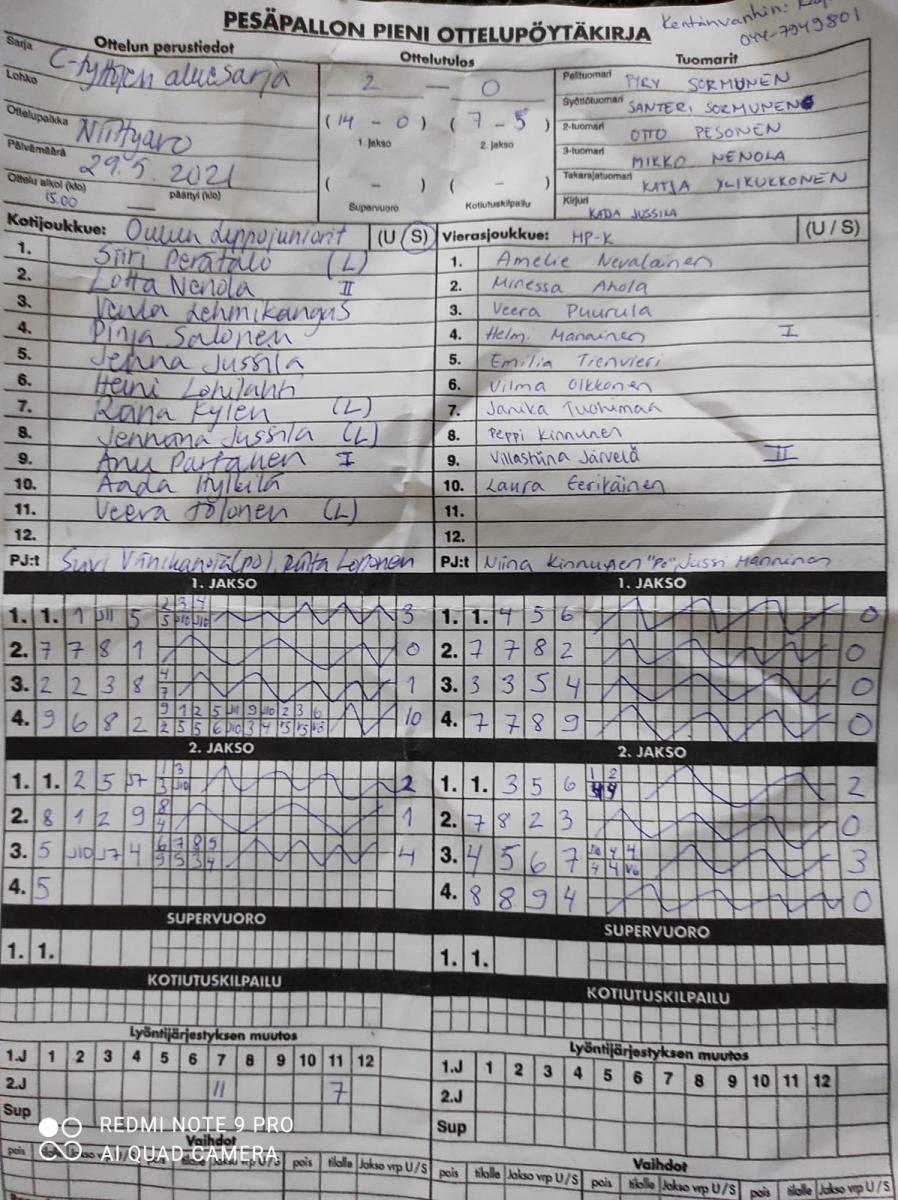 PESÄPALLON PIENI OTTELUPÖYTÄKIRJA
Kentänvanhin:
044-7949801
Ottelun perustiedot
Ottelutulos
Tuomarit
Sarja C-tyttöjen aluesarja
Lohko
Ottelupaikka Niittyaro
Päivämäärä 29.5.2021
Ottelu alkoi (klo) päättyi (klo)
15.00
2 — 0
(14 - 0) (7 - 5)
1. jakso 2. jakso
( - ) ( - )
Supervuoro Kotiutuskilpailu
Pelituomari PYRY SORMUNEN
Syöttötuomari SANTERI SORMUNEN
2-tuomari OTTO PESONEN
3-tuomari MIKKO NENOLA
Takarajatuomari KATJA YLIKUKKONEN
Kirjuri KATJA JUSSILA
Kotijoukkue: Oulun Lippojuniorit (U / S)
1. Siiri Perätalo (L)
2. Lotta Nenola II
3. Venla Lehmikangas
4. Pinja Salonen
5. Jenna Jussila
6. Heini Lohilahti
7. Rana Kylen (L)
8. Jennana Jussila (L)
9. Anu Partanen I
10. Aada Hylkilä
11. Veera Tölonen (L)
12.
PJ:t Suvi Vänikanoja (po), Riitta Lepponen
Vierasjoukkue: HP-K (U / S)
1. Amelie Nevalainen
2. Minessa Ahola
3. Veera Puurula
4. Helmi Manninen I
5. Emilia Tienvieri
6. Vilma Olkkonen
7. Janika Tuohimaa
8. Peppi Kinnunen
9. Villastiina Järvelä II
10. Laura Eerikäinen
11.
12.
PJ:t Niina Kinnunen "Po", Jussi Manninen
1. JAKSO
1. 1. 1 J11 5 3
2 3 4
5 J10 J10
2. 7 7 8 1 0
3. 2 2 3 8 1
4
7
4. 9 6 8 2 10
9 1 2 5 J11 9 J10 2 3 6
2 5 5 6 J10 3 4 V5 V5 V5
2. JAKSO
1. 1. 2 5 J7 2
1 3
3 J10
2. 8 1 2 9 1
8
4
3. 5 J10 J7 4 4
6 7 8 5
9 9 3 4
4. 5
SUPERVUORO
1. 1.
KOTIUTUSKILPAILU
Lyöntijärjestyksen muutos
1.J 1 2 3 4 5 6 7 8 9 10 11 12
2.J 11 7
Sup
Vaihdot
pois tilalle Jakso vrp U/S pois tilalle Jakso vrp U/S
1. JAKSO
1. 1. 4 5 6 0
2. 7 7 8 2 0
3. 3 3 5 4 0
4. 7 7 8 9 0
2. JAKSO
1. 1. 3 5 6 2
1 2
2. 7 8 2 3 0
3. 4 5 6 7 3
J10 4 4
4 4 V6
4. 8 8 9 4 0
SUPERVUORO
1. 1.
KOTIUTUSKILPAILU
Lyöntijärjestyksen muutos
1.J 1 2 3 4 5 6 7 8 9 10 11 12
2.J
Sup
Vaihdot
pois tilalle Jakso vrp U/S pois tilalle Jakso vrp U/S
REDMI NOTE 9 PRO
AI QUAD CAMERA